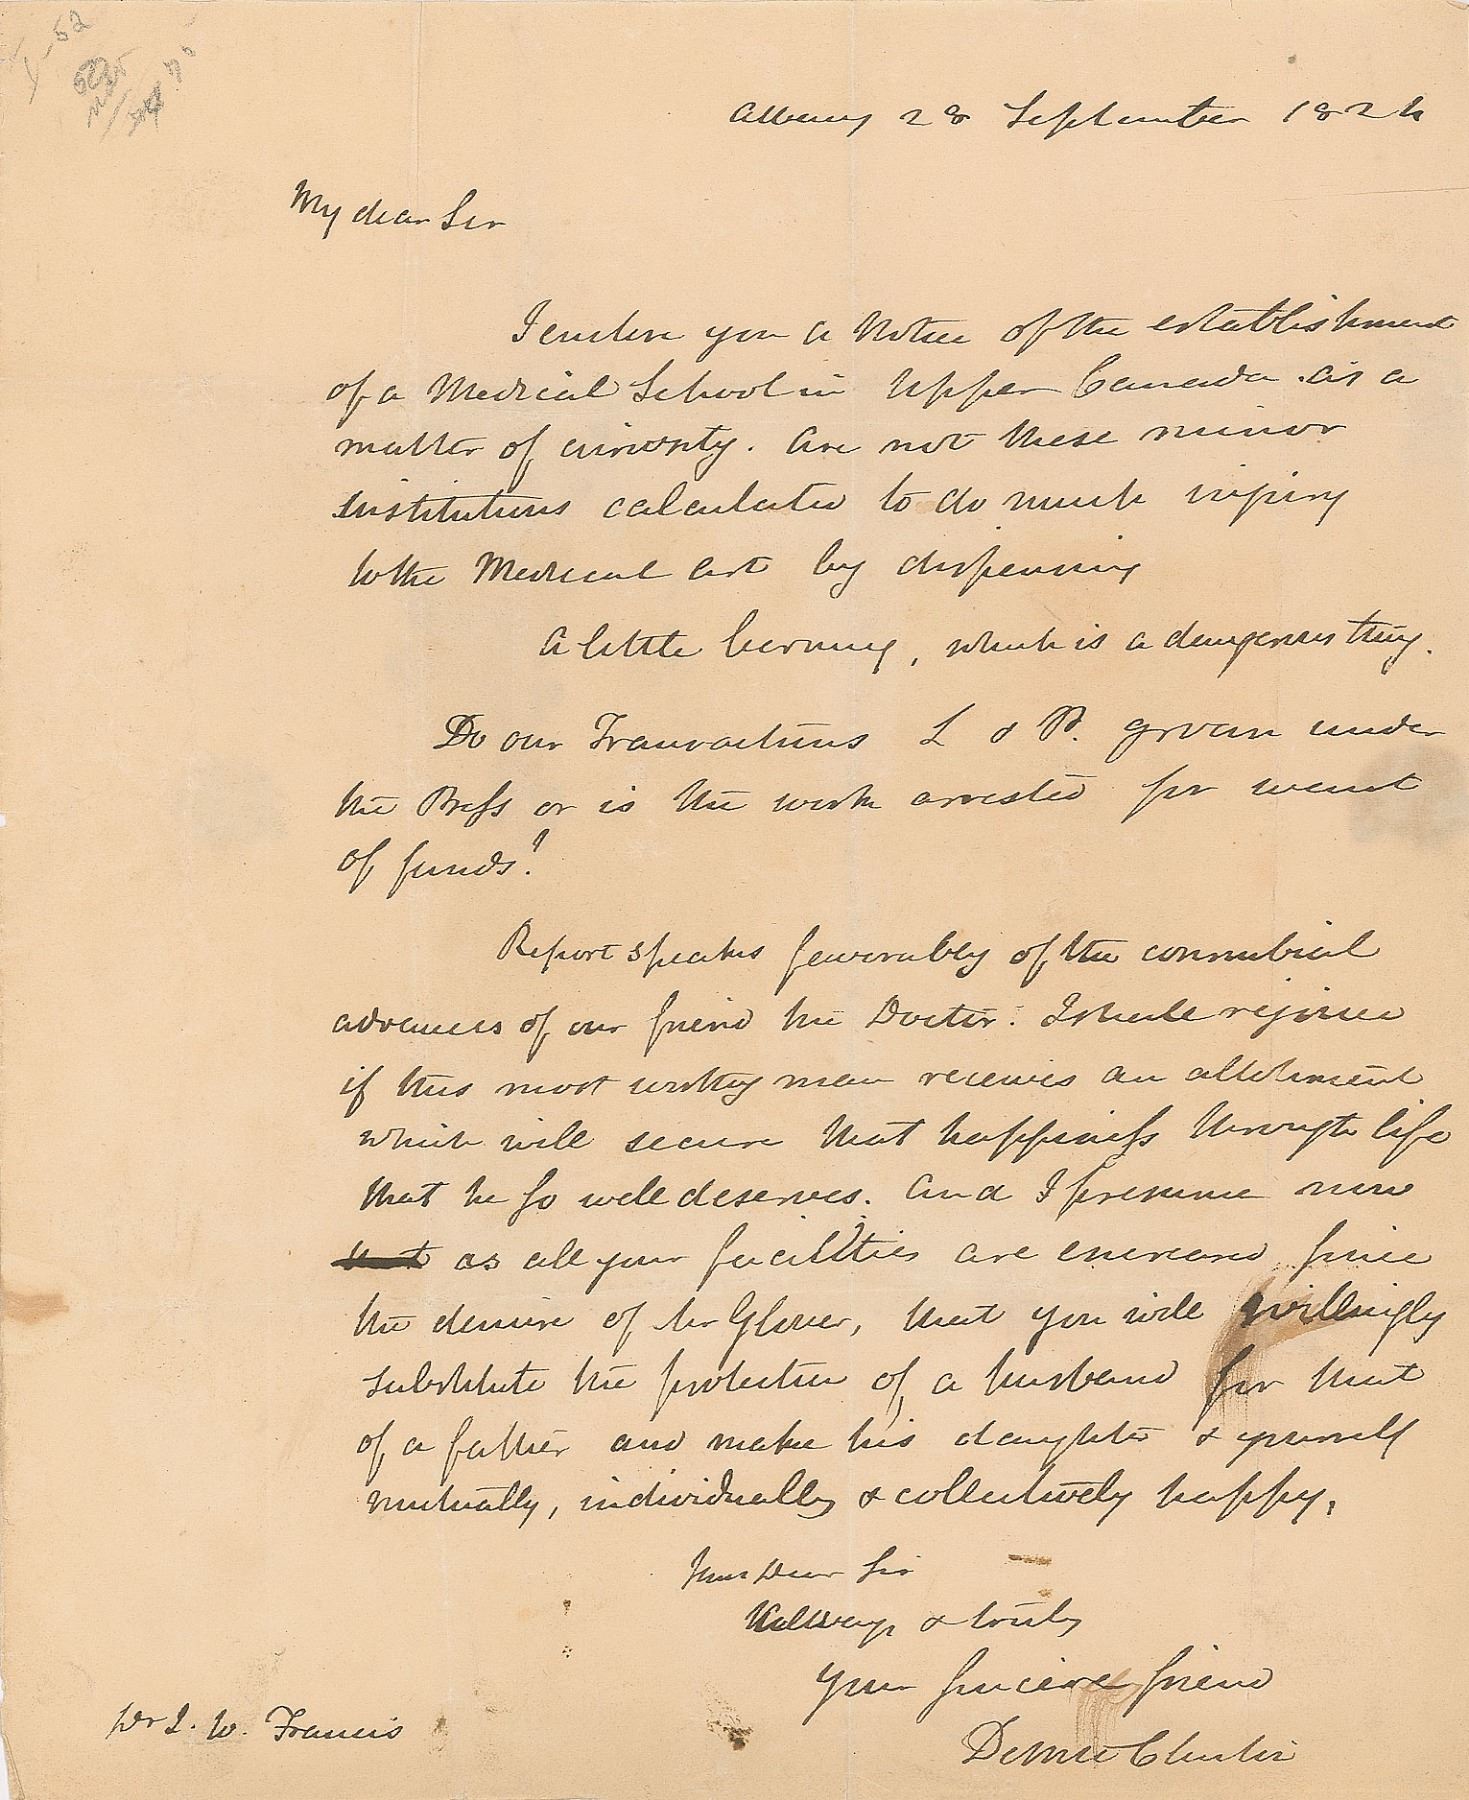 Albany 28 September 1824
My dear Sir
I enclose you a Notice of the establishment
of a Medical School in Upper Canada as a
matter of curiosity. Are not these minor
institutions calculated to do much injury
to the Medical art by dispensing
a little learning, which is a dangerous thing.
Do our Transactions L & P. groan under
the Press or is the work arrested for want
of funds?
Report speaks favorably of the connubial
advances of our friend the Doctor. I shall rejoice
if this most worthy man receives an allotment
which will secure that happiness through life
that he so well deserves. And I presume now
that as all your facilities are encreased since
the demise of Mr Glover, that you will willingly
substitute the protection of a husband for that
of a father and make his daughter & yourself
mutually, individually & collectively happy,
Dear Sir
Always & truly
Your sincere friend
DeWitt Clinton
Dr J. W. Francis